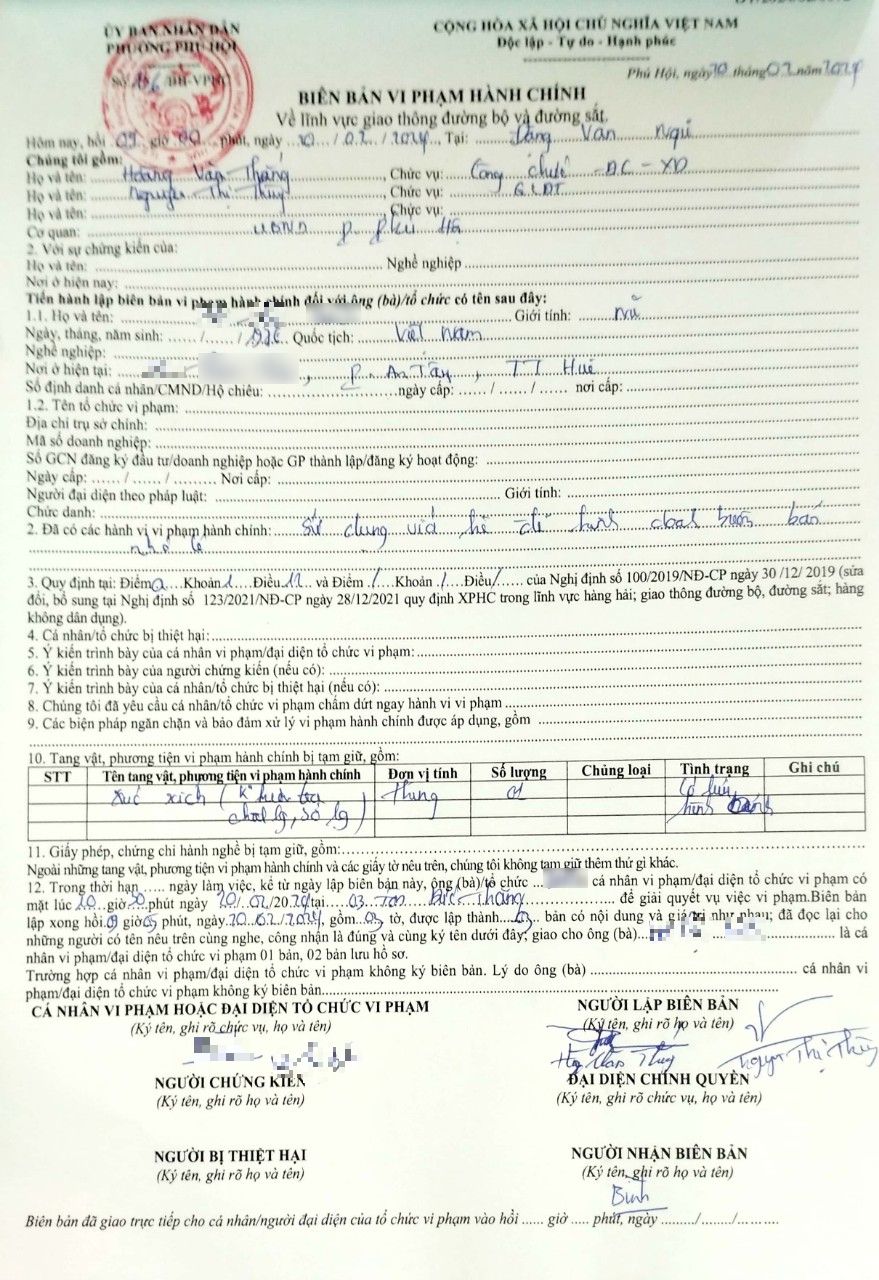 ỦY BAN NHÂN DÂN
PHƯỜNG PHÚ HỘI
CỘNG HÒA XÃ HỘI CHỦ NGHĨA VIỆT NAM
Độc lập - Tự do - Hạnh phúc
Số 156 /BB-VPHC
Phú Hội, ngày 20 tháng 02 năm 2024
BIÊN BẢN VI PHẠM HÀNH CHÍNH
Về lĩnh vực giao thông đường bộ và đường sắt.
Hôm nay, hồi 09 giờ 00 phút, ngày 20 / 02 / 2024, Tại: Đặng Văn Ngữ
Chúng tôi gồm:
Họ và tên: Hoàng Văn Thắng, Chức vụ: Công chức ĐC - XD
Họ và tên: Nguyễn Thị Thùy, Chức vụ: QLĐT
Họ và tên:, Chức vụ:
Cơ quan: UBND P. Phú Hội
2. Với sự chứng kiến của:
Họ và tên: Nghề nghiệp
Nơi ở hiện nay:
Tiến hành lập biên bản vi phạm hành chính đối với ông (bà)/tổ chức có tên sau đây:
1.1. Họ và tên: Giới tính: nữ
Ngày, tháng, năm sinh: ....../....../ Quốc tịch: Việt Nam
Nghề nghiệp:
Nơi ở hiện tại: , P. An Tây, TT Huế
Số định danh cá nhân/CMND/Hộ chiếu: ngày cấp: ....../....../...... nơi cấp:
1.2. Tên tổ chức vi phạm:
Địa chỉ trụ sở chính:
Mã số doanh nghiệp:
Số GCN đăng ký đầu tư/doanh nghiệp hoặc GP thành lập/đăng ký hoạt động:
Ngày cấp: ....../....../......... Nơi cấp:
Người đại diện theo pháp luật: Giới tính:
Chức danh:
2. Đã có các hành vi vi phạm hành chính: Sử dụng vỉa hè để buôn bán
nhỏ lẻ
3. Quy định tại: Điểm a Khoản 1 Điều 12 và Điểm / Khoản / Điều / của Nghị định số 100/2019/NĐ-CP ngày 30 /12/ 2019 (sửa
đổi, bổ sung tại Nghị định số 123/2021/NĐ-CP ngày 28/12/2021 quy định XPHC trong lĩnh vực hàng hải; giao thông đường bộ, đường sắt; hàng
không dân dụng).
4. Cá nhân/tổ chức bị thiệt hại:
5. Ý kiến trình bày của cá nhân vi phạm/đại diện tổ chức vi phạm:
6. Ý kiến trình bày của người chứng kiến (nếu có):
7. Ý kiến trình bày của cá nhân/tổ chức bị thiệt hại (nếu có):
8. Chúng tôi đã yêu cầu cá nhân/tổ chức vi phạm chấm dứt ngay hành vi vi phạm
9. Các biện pháp ngăn chặn và bảo đảm xử lý vi phạm hành chính được áp dụng, gồm
10. Tang vật, phương tiện vi phạm hành chính bị tạm giữ, gồm:
STT Tên tang vật, phương tiện vi phạm hành chính Đơn vị tính Số lượng Chủng loại Tình trạng Ghi chú
xúc xích (K kiểm tra Thùng 01
chất lg, số lg)
11. Giấy phép, chứng chỉ hành nghề bị tạm giữ, gồm:
Ngoài những tang vật, phương tiện vi phạm hành chính và các giấy tờ nêu trên, chúng tôi không tạm giữ thêm thứ gì khác.
12. Trong thời hạn ..... ngày làm việc, kể từ ngày lập biên bản này, ông (bà)/tổ chức cá nhân vi phạm/đại diện tổ chức vi phạm có
mặt lúc giờ 30 phút ngày 20/02/2024 tại 03 Tôn Đức Thắng để giải quyết vụ việc vi phạm.Biên bản
lập xong hồi 09 giờ 05 phút, ngày 20/02/2024, gồm 03 tờ, được lập thành 03 bản có nội dung và giá trị như nhau; đã đọc lại cho
những người có tên nêu trên cùng nghe, công nhận là đúng và cùng ký tên dưới đây; giao cho ông (bà) là cá
nhân vi phạm/đại diện tổ chức vi phạm 01 bản, 02 bản lưu hồ sơ.
Trường hợp cá nhân vi phạm/đại diện tổ chức vi phạm không ký biên bản. Lý do ông (bà) cá nhân vi
phạm/đại diện tổ chức vi phạm không ký biên bản
CÁ NHÂN VI PHẠM HOẶC ĐẠI DIỆN TỔ CHỨC VI PHẠM
(Ký tên, ghi rõ chức vụ, họ và tên)
NGƯỜI LẬP BIÊN BẢN
(Ký tên, ghi rõ họ và tên)
Nguyễn Thị Thùy
NGƯỜI CHỨNG KIẾN
(Ký tên, ghi rõ họ và tên)
ĐẠI DIỆN CHÍNH QUYỀN
(Ký tên, ghi rõ chức vụ, họ và tên)
NGƯỜI BỊ THIỆT HẠI
(Ký tên, ghi rõ họ và tên)
NGƯỜI NHẬN BIÊN BẢN
(Ký tên, ghi rõ họ và tên)
Bình
Biên bản đã giao trực tiếp cho cá nhân/người đại diện của tổ chức vi phạm vào hồi ...... giờ ..... phút, ngày ........./......../.........